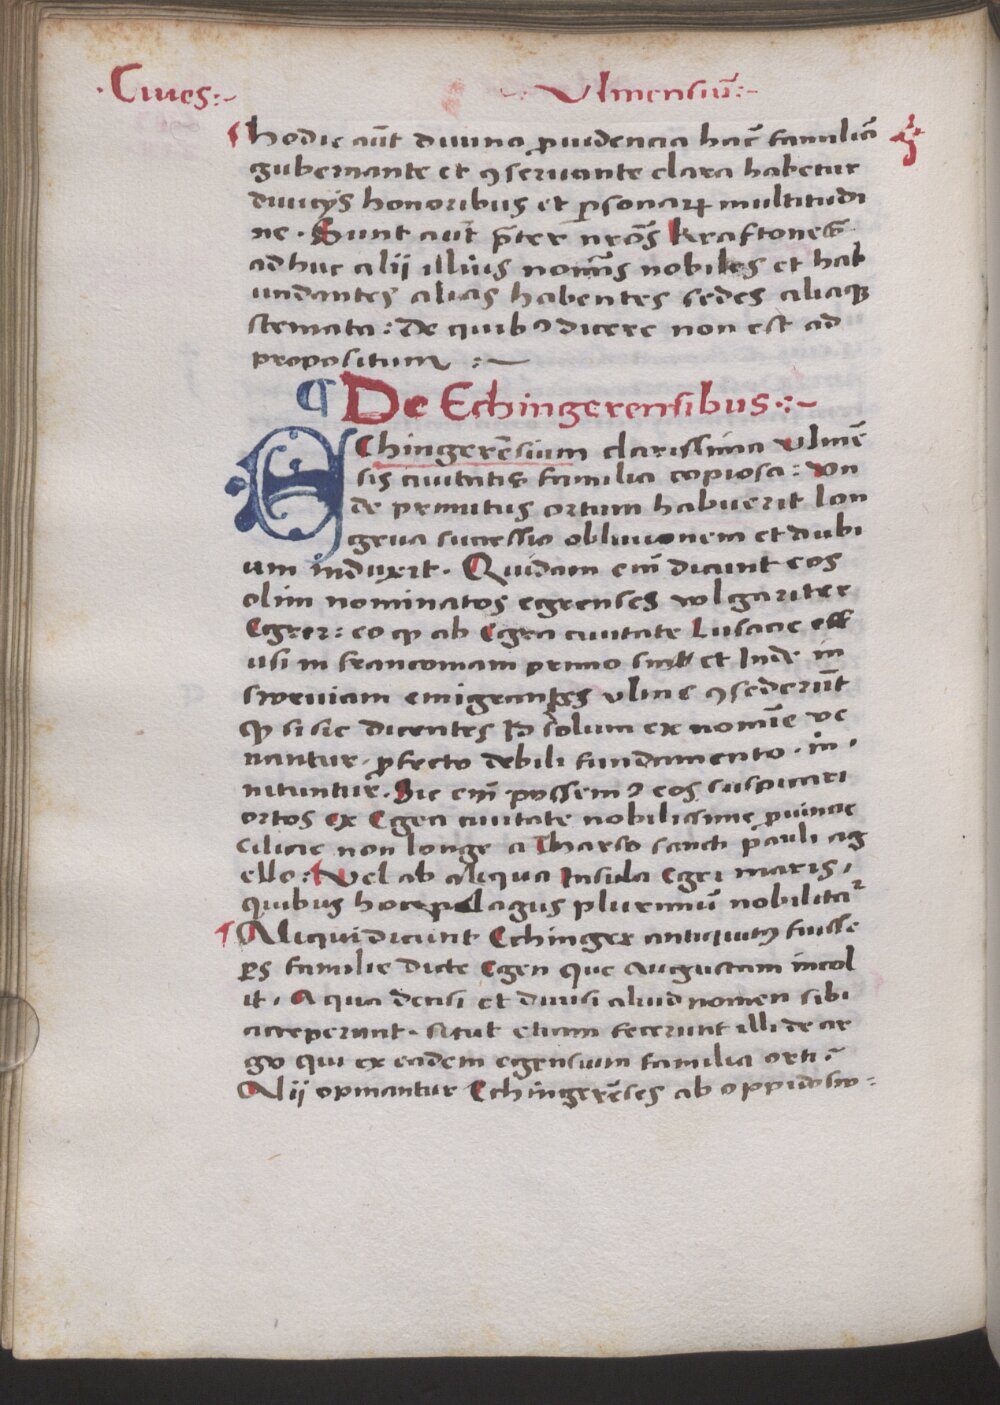 Ciues
Vlmensiū
hodie aūt diuina ꝓuidencia hāc familiā
gubernante et ꝯseruante clara habetur
diuicijs honoribus et ꝑsonaꝝ multitudi
ne. Sunt aūt p̄ter nrōs Kraftones
adhuc alii illius nomīs nobiles et hab
undantes alias habentes sedes aliaqꝫ
stemata: De quibꝰ dicere non est ad
propositum :~
¶ De Echingerensibus:~
EChingerēsium clarissima Vlmē
sis ciuitatis familia copiosa: Vn
de primitus ortum habuerit lon
geua successio obliuionem et dubi
um induxit. Quidam em̄ dicunt eos
olim nominatos egrenses wlgariter
Egrer: eo ꝙ ab Egra ciuitate Lusacie eff
usi in franconiam primo sint et Inde in
sweuiam emigrantes vlme ꝯsederūt
ꝙ si sic dicentes solum ex nomīe ve
nantur. ꝓfecto debili fundamento in
nituntur. Sic em̄ possemꝰ eos suspicari
ortos ex Egea ciuitate nobilissime ꝓuincie
cilicie non longe a Tharso sancti pauli ag
ello: Vel ab aliqua Insula Egei maris,
quibus hoc pelagus plurimū nobilitaᷣ
Aliqui dicunt Echinger antiquitꝰ fuisse
ꝑs familie dicte Egen que Augustam incol
it. A qua decisi et diuisi aliud nomen sibi
acceperunt. sicut etiam fecerunt illi de ar
go qui ex eadem egensium familia orti
Alii opinantur Echingerēses ab oppido sw